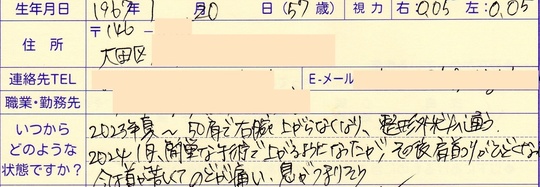 生年月日 1967年 1月 20日 (57歳) 視力 右:0.05 左:0.05
住所 〒146
大田区
連絡先TEL E-メール
職業・勤務先
いつから
どのような
状態ですか?
2023年夏〜 50肩で右腕上がらなくなり、整形外科に通う
2024.1月、簡単な手術で上がるようになったが、その後肩首コリがひどくな
今は首が苦しくてのどが痛い、息がつまり